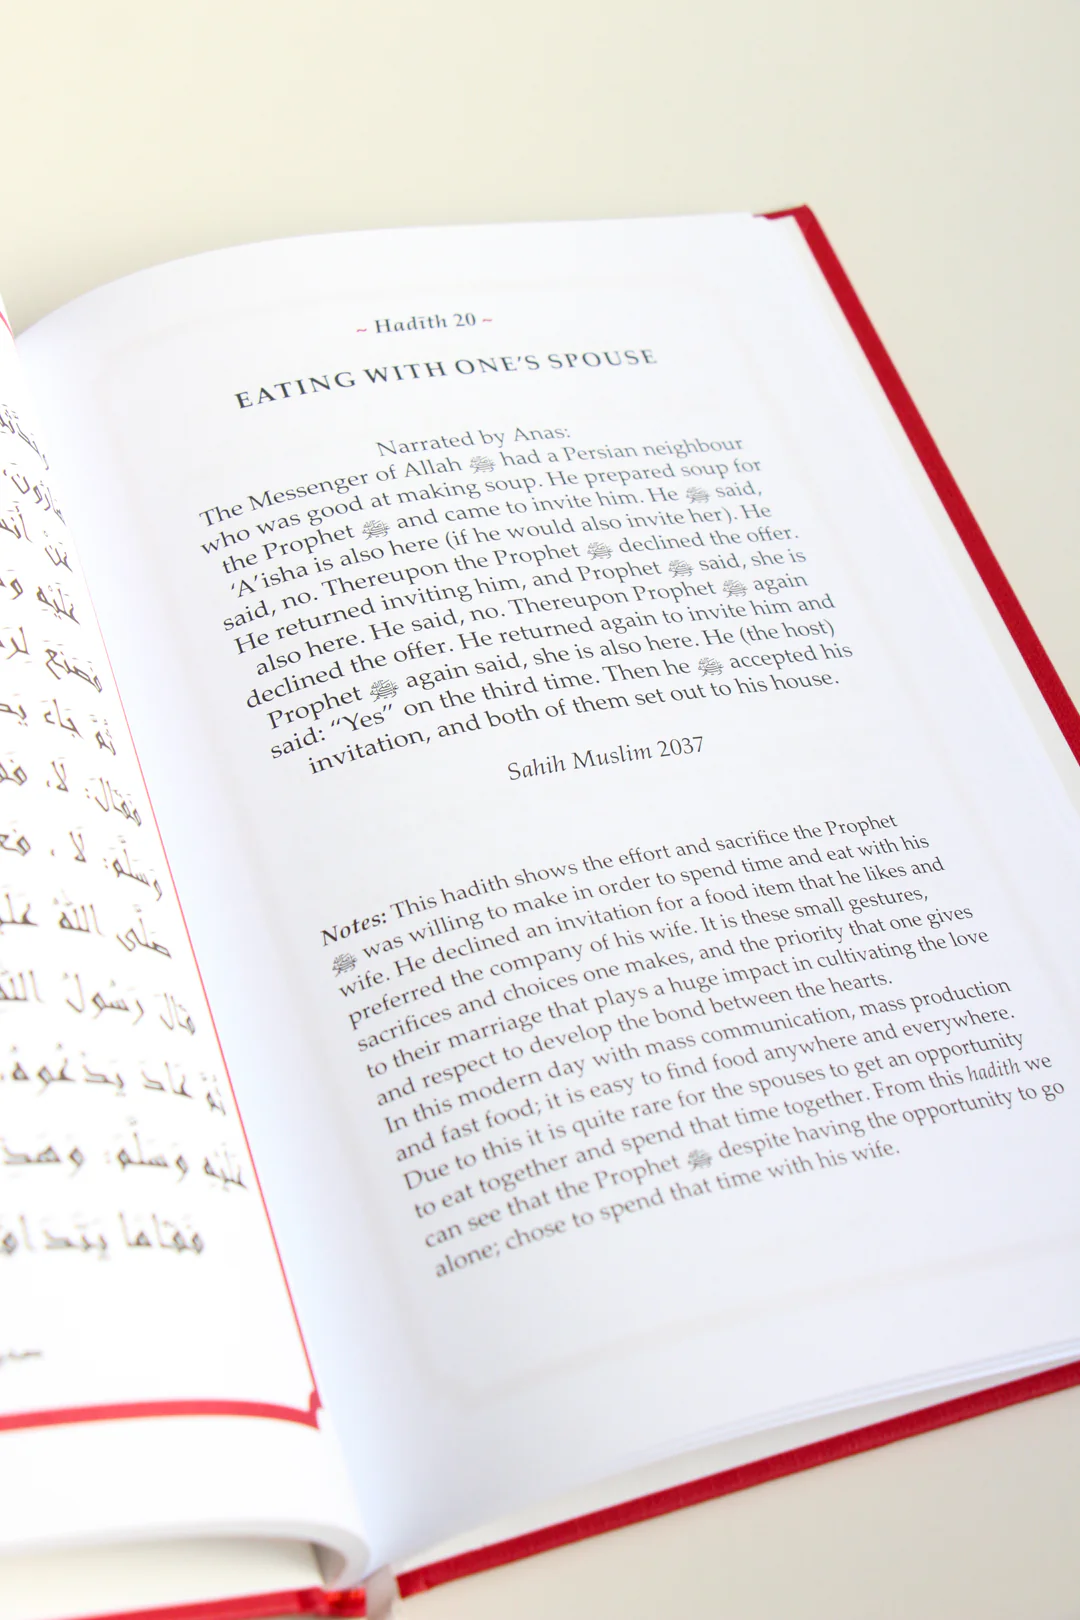 ~ Hadīth 20 ~
EATING WITH ONE'S SPOUSE
Narrated by Anas:
The Messenger of Allah ﷺ had a Persian neighbour
who was good at making soup. He prepared soup for
the Prophet ﷺ and came to invite him. He ﷺ said,
‘A’isha is also here (if he would also invite her). He
said, no. Thereupon the Prophet ﷺ declined the offer.
He returned inviting him, and Prophet ﷺ said, she is
also here. He said, no. Thereupon Prophet ﷺ again
declined the offer. He returned again to invite him and
Prophet ﷺ again said, she is also here. He (the host)
said: “Yes” on the third time. Then he ﷺ accepted his
invitation, and both of them set out to his house.
Sahih Muslim 2037
Notes: This hadith shows the effort and sacrifice the Prophet
ﷺ was willing to make in order to spend time and eat with his
wife. He declined an invitation for a food item that he likes and
preferred the company of his wife. It is these small gestures,
sacrifices and choices one makes, and the priority that one gives
to their marriage that plays a huge impact in cultivating the love
and respect to develop the bond between the hearts.
In this modern day with mass communication, mass production
and fast food; it is easy to find food anywhere and everywhere.
Due to this it is quite rare for the spouses to get an opportunity
to eat together and spend that time together. From this hadith we
can see that the Prophet ﷺ despite having the opportunity to go
alone; chose to spend that time with his wife.
عَلَيْهِ
فَصَنَعَ
ثُمَّ جَاءَ
فَقَالَ: لَا،
وَسَلَّمَ: لَا،
صَلَّى اللَّهُ
قَالَ رَسُولُ
ثُمَّ عَادَ يَدْعُوهُ،
عَلَيْهِ وَسَلَّمَ: وَهَذِ
فَقَامَا